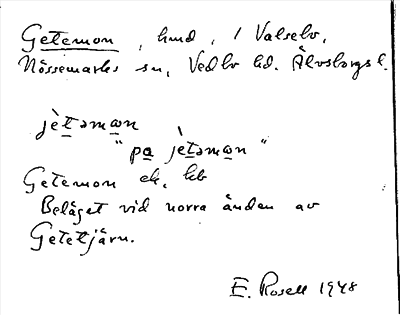 Getemon, hmd, i Valselv,
Nössemarks sn, Vedbo hd. Älvsborgs l.
jètəmɷn
"pa jètəmɷn"
Getemon ek, kb
Beläget vid norra änden av
Getetjärn.
E. Rosell 1948